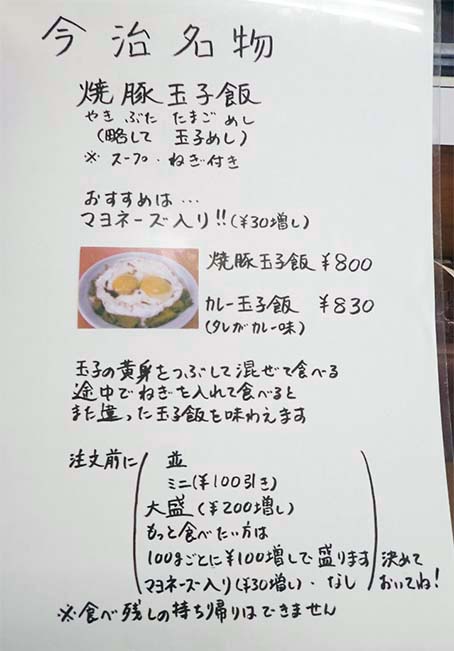 今治名物
焼豚玉子飯
やき ぶた たまご めし
(略して 玉子めし)
※ スープ・ねぎ付き
おすすめは…
マヨネーズ入り!!(¥30増し)
焼豚玉子飯 ¥800
カレー玉子飯 ¥830
(タレがカレー味)
玉子の黄身をつぶして混ぜて食べる
途中でねぎを入れて食べると
また違った玉子飯を味わえます
注文前に
並
ミニ(¥100引き)
大盛(¥200増し)
もっと食べたい方は
100gごとに¥100増しで盛ります
マヨネーズ入り(¥30増し)・なし
決めて
おいてね!
※食べ残しの持ち帰りはできません